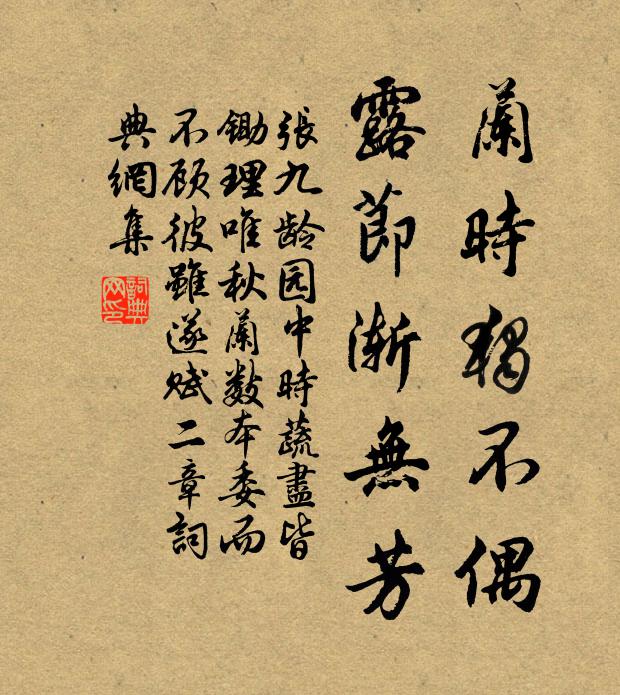 蘭時獨不偶
露節漸無芳
張九齡园中時蔬盡皆
鋤理唯秋蘭数本委而
不顾彼雖遂赋二章詞
典網集
詞典网印